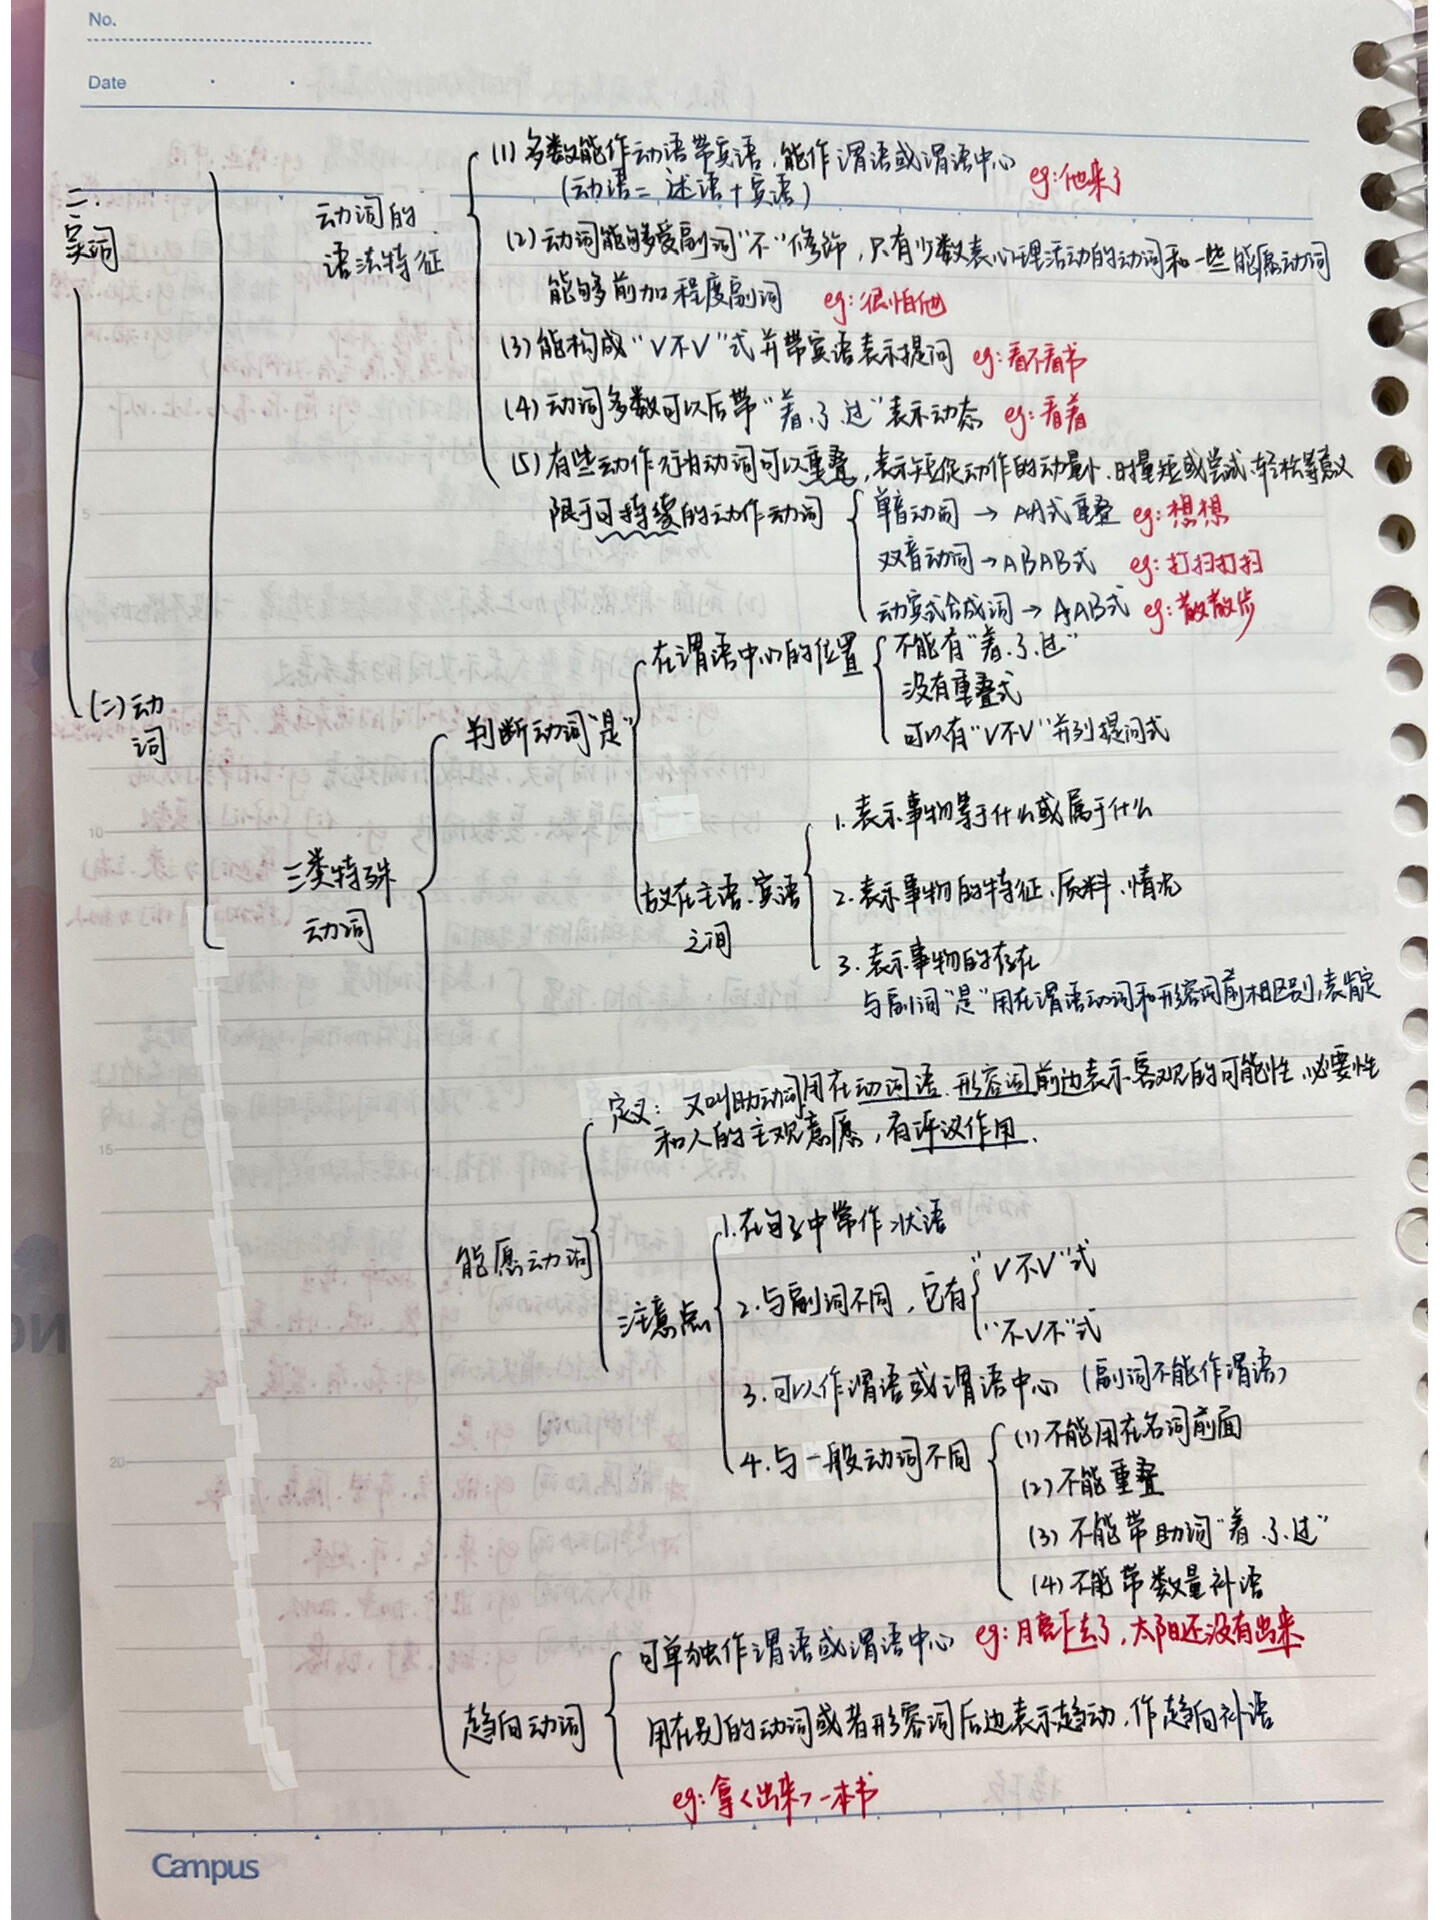 No.
Date
二.
实词
(二)动
词
动词的
语法特征
(1)多数能作动语带宾语,能作谓语或谓语中心 eg:他来了
(动语=述语+宾语)
(2)动词能够受副词“不”修饰,只有少数表心理活动的动词和一些能愿动词
能够前加程度副词 eg:很怕他
(3)能构成“V不V”式并带宾语表示提问 eg:看不看书
(4)动词多数可以后带“着、了、过”表示动态 eg:看着
(5)有些动作行为动词可以重叠,表示短促动作的动量小、时量短或尝试、轻松等意义
限于可持续的动作动词
单音动词→AA式重叠 eg:想想
双音动词→ABAB式 eg:打扫打扫
动宾式合成词→AAB式 eg:散散步
三类特殊
动词
判断动词“是”
在谓语中心的位置
不能有“着、了、过”
没有重叠式
可以有“V不V”并列提问式
放在主语、宾语
之间
1.表示事物等于什么或属于什么
2.表示事物的特征、质料、情况
3.表示事物的存在
与副词“是”用在谓语动词和形容词前相区别,表肯定
能愿动词
定义:又叫助动词用在动词语、形容词前边表示客观的可能性、必要性
和人的主观意愿,有评议作用.
注意点
1.在句子中常作状语
2.与副词不同,它有
“V不V”式
“不V不”式
3.可以作谓语或谓语中心(副词不能作谓语)
4.与一般动词不同
(1)不能用在名词前面
(2)不能重叠
(3)不能带助词“着、了、过”
(4)不能带数量补语
趋向动词
可单独作谓语或谓语中心 eg:月亮下去了,太阳还没有出来
用在别的动词或者形容词后边表示趋动,作趋向补语
eg:拿<出来>一本书
5
10
15
20
Campus